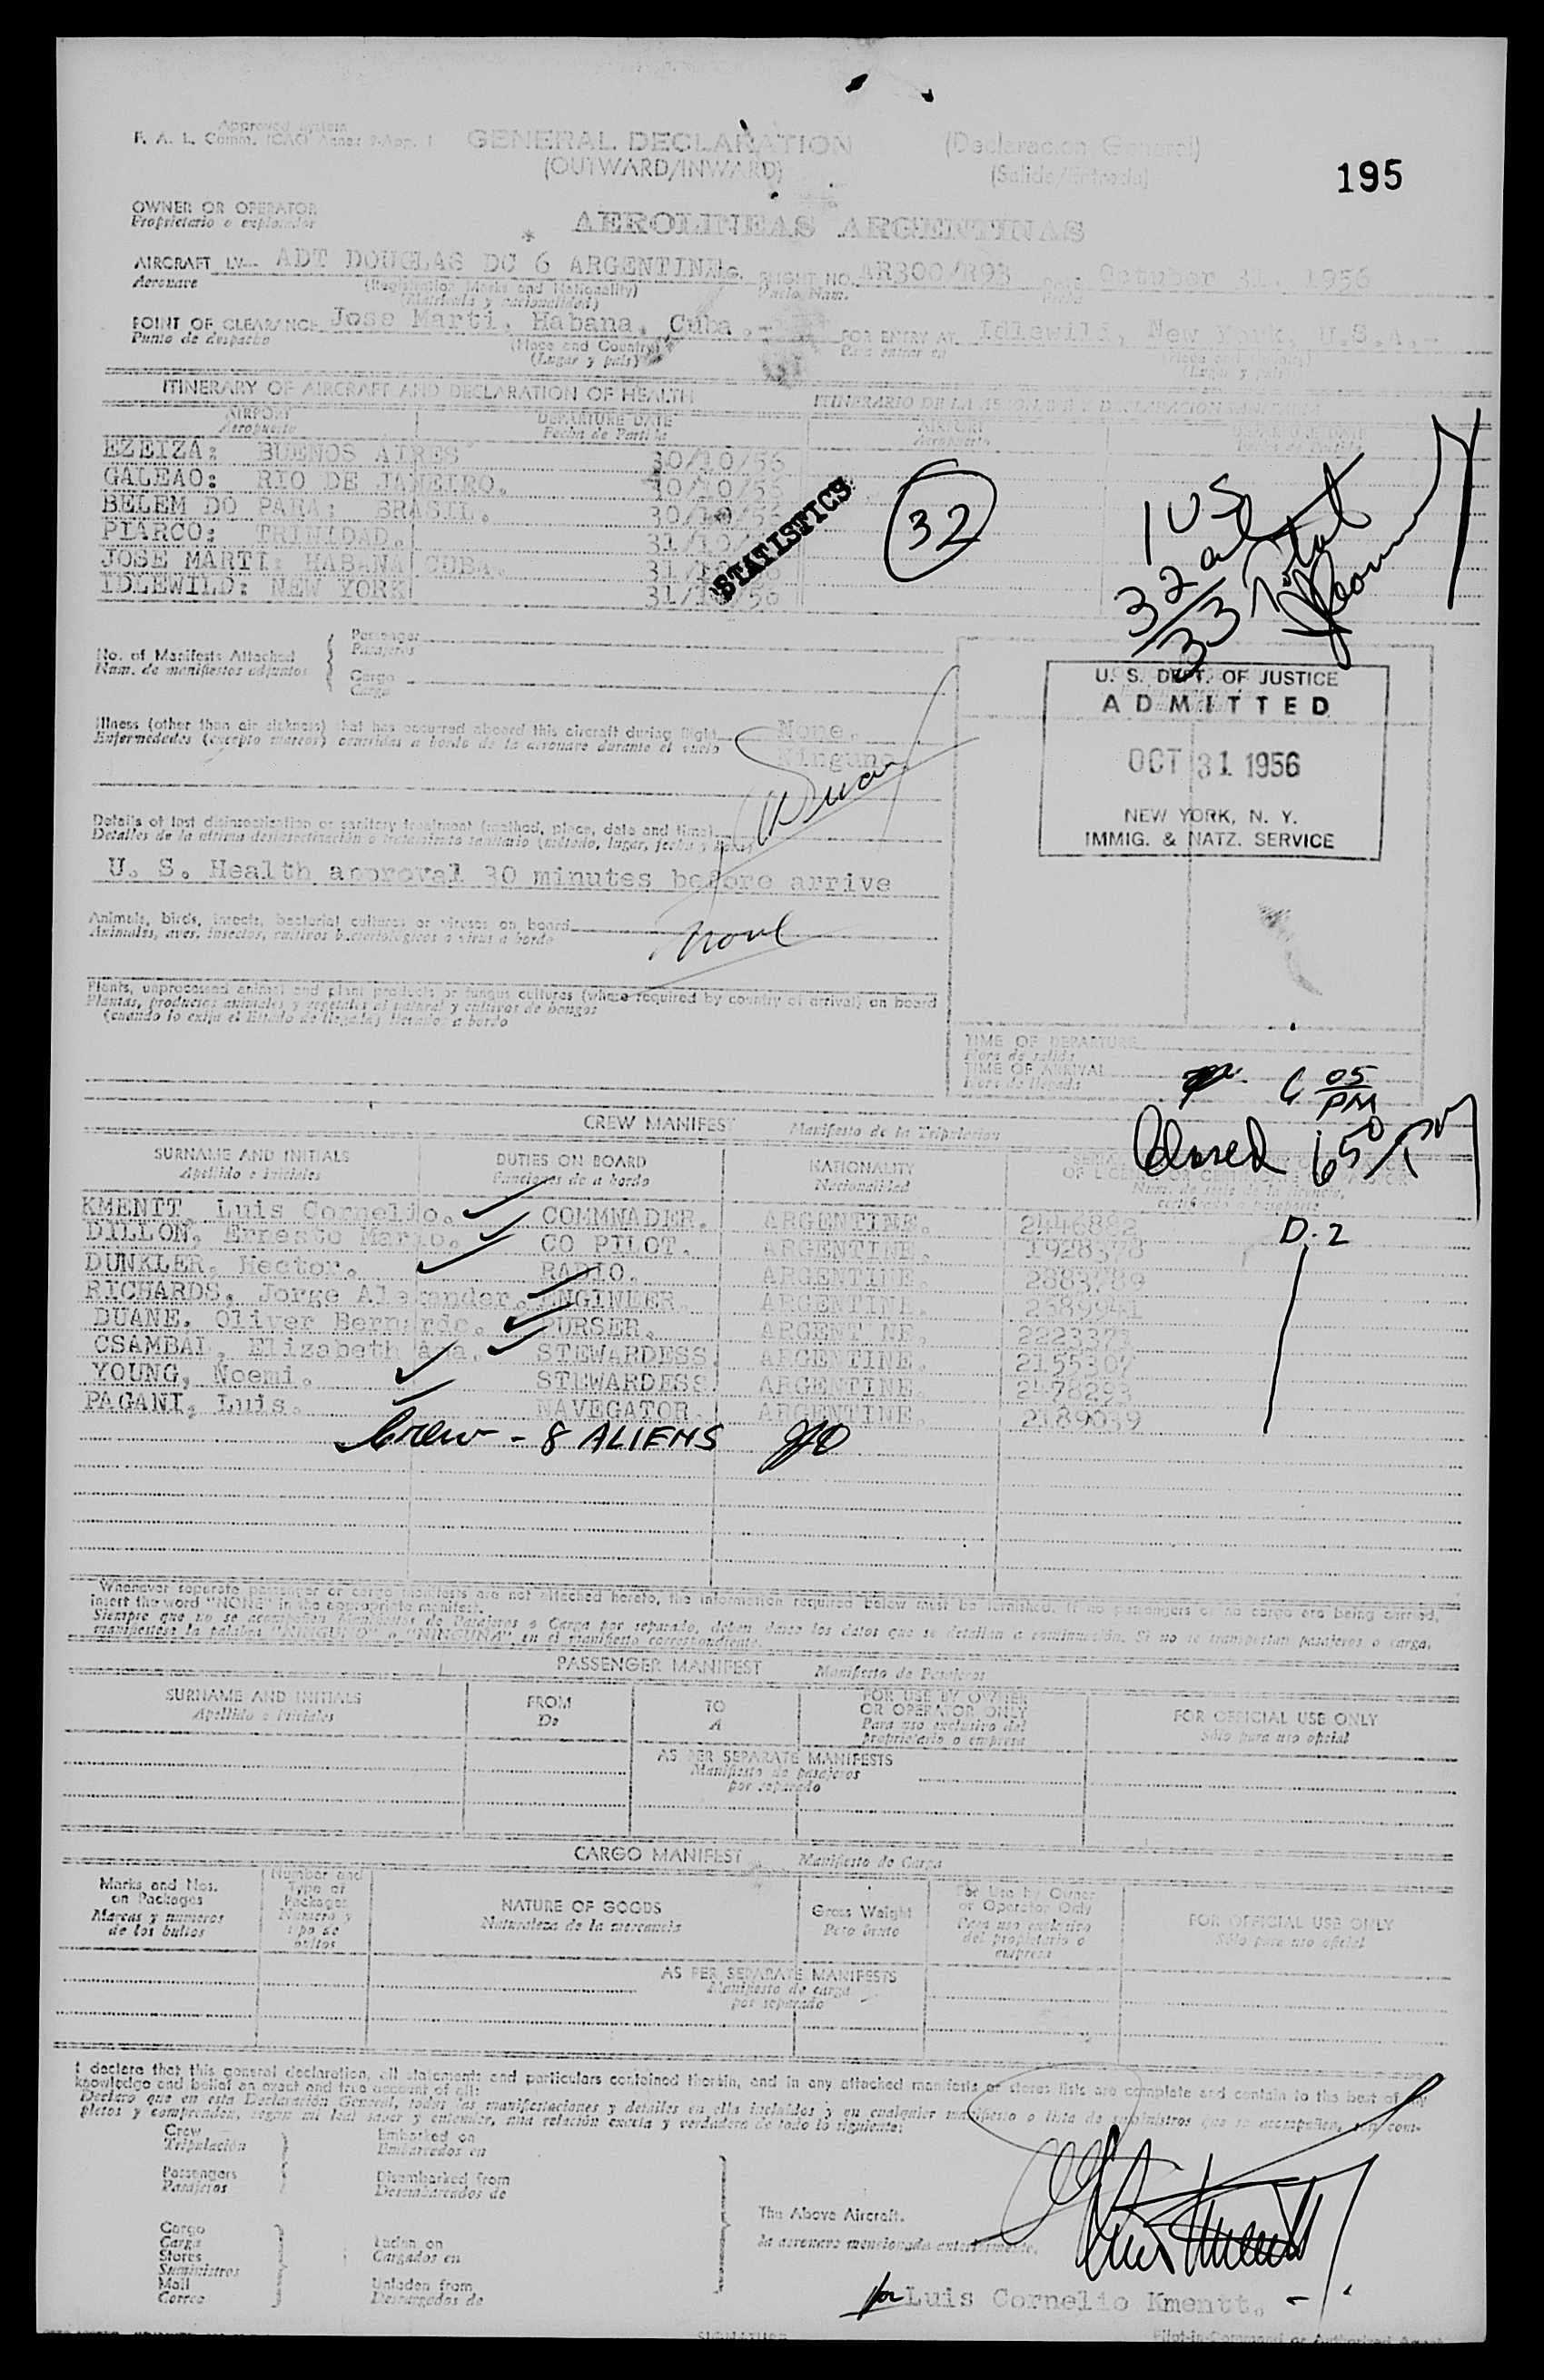 Approved system
F. A. L. Comm. ICAO Annex 9-App. 1 GENERAL DECLARATION (Declaracion General)
(OUTWARD/INWARD) (Salida/Entrada)
195
OWNER OR OPERATOR
Propietario o explotador
AEROLINEAS ARGENTINAS
AIRCRAFT LV-- ADT DOUGLAS DC 6 ARGENTINE. FLIGHT NO. AR300/R93 DATE October 31. 1956
Aeronave (Registration Marks and Nationality) Vuelo Num. Fecha
(Matricula y nacionalidad)
POINT OF CLEARANCE Jose Marti. Habana, Cuba.- FOR ENTRY AT Idlewild, New York, U.S.A.-
Punto de despacho (Place and Country) Para entrar en
(Lugar y pais)
ITINERARY OF AIRCRAFT AND DECLARATION OF HEALTH
AIRPORT DEPARTURE DATE AIRPORT
Aeropuerto Fecha de Partida Aeropuerto
EZEIZA: BUENOS AIRES 30/10/56
GALEAO: RIO DE JANEIRO. 30/10/56
BELEM DO PARA: BRASIL. 30/10/56
PIARCO: TRINIDAD. 31/10/
JOSE MARTI: HABANA CUBA. 31/10/56
IDLEWILD: NEW YORK 31/10/56
STATISTICS
32
1 US
32 al
33 Total
No. of Manifests Attached Passenger
Num. de manifiestos adjuntos Pasajeros
Cargo
Carga
U. S. DEPT. OF JUSTICE
ADMITTED
OCT 31 1956
NEW YORK, N. Y.
IMMIG. & NATZ. SERVICE
Illness (other than air sickness) that has occurred aboard this aircraft during flight None.
Enfermedades (excepto mareos) ocurridas a bordo de la aeronave durante el vuelo Ninguna
Details of last disinsectization or sanitary treatment (method, place, date and time)
Detalles de la ultima desinsectización o tratamiento sanitario (método, lugar, fecha y hora)
U. S. Health approval 30 minutes before arrive
Animals, birds, insects, bacterial cultures or viruses on board none
Animales, aves, insectos, cultivos bacteriológicos o virus a bordo
Plants, unprocessed animal and plant products or fungus cultures (where required by country of arrival) on board
Plantas, productos animales y vegetales al natural y cultivos de hongos
(cuando lo exija el Estado de llegada) llevados a bordo
TIME OF DEPARTURE
Hora de salida
TIME OF ARRIVAL 6 05 PM
Hora de llegada
Closed 650 PM
CREW MANIFEST Manifiesto de la Tripulacion
SURNAME AND INITIALS DUTIES ON BOARD NATIONALITY
Apellido e iniciales Funciones de a bordo Nacionalidad
KMENTT Luis Cornelio. COMMNADER. ARGENTINE. 2446882
D.2
DILLON, Ernesto Mario. CO PILOT. ARGENTINE. 1928378
DUNKLER. Hector. RADIO. ARGENTINE. 2883789
RICHARDS, Jorge Alexander. ENGINEER. ARGENTINE. 2389941
DUANE. Oliver Bernardo. PURSER. ARGENTINE. 2223373
CSAMBAL, Elizabeth Ana. STEWARDESS. ARGENTINE. 2155307
YOUNG, Noemi. STEWARDESS. ARGENTINE 2478293
PAGANI, Luis. NAVEGATOR. ARGENTINE. 2189039
Crew - 8 ALIENS
Whenever separate passenger or cargo manifests are not attached hereto, the information required below must be furnished. If no passengers or no cargo are being carried,
insert the word "NONE" in the appropriate manifest.
Siempre que no se acompañen Manifiestos de Pasajeros o Carga por separado, deben darse los datos que se detallan a continuación. Si no se transportan pasajeros o carga,
manifiestese la palabra "NINGUNO" o "NINGUNA" en el manifiesto correspondiente.
PASSENGER MANIFEST Manifiesto de Pasajeros
SURNAME AND INITIALS FROM TO FOR USE BY OWNER OR OPERATOR ONLY FOR OFFICIAL USE ONLY
Apellido e iniciales De A Para uso exclusivo del propietario o empresa Sólo para uso oficial
AS PER SEPARATE MANIFESTS
Manifiesto de pasajeros
por separado
CARGO MANIFEST Manifiesto de Carga
Marks and Nos. on Packages Number and Type of Packages NATURE OF GOODS Gross Weight For Use by Owner or Operator Only FOR OFFICIAL USE ONLY
Marcas y números de los bultos Número y tipo de bultos Naturaleza de la mercancia Peso bruto Para uso exclusivo del propietario o empresa Sólo para uso oficial
AS PER SEPARATE MANIFESTS
Manifiesto de carga
por separado
I declare that this general declaration, all statements and particulars contained therein, and in any attached manifests or stores lists are complete and contain to the best of my
knowledge and belief an exact and true account of all:
Declaro que en esta Declaración General, todas las manifestaciones y detalles en ella incluidos y en cualquier manifiesto o lista de suministros que se acompañen, son com-
pletos y comprenden, según mi leal saber y entender, una relación exacta y verdadera de todo lo siguiente:
Crew Embarked on
Tripulación Embarcados en
Passengers Disembarked from
Pasajeros Desembarcados de
The Above Aircraft.
la aeronave mencionada anteriormente.
Cargo
Carga Laden on
Stores Cargados en
Suministros
Mail Unladen from
Correo Descargados de
for Luis Cornelio Kmentt.
SIGNATURE Pilot-in-Command or Authorized Agent